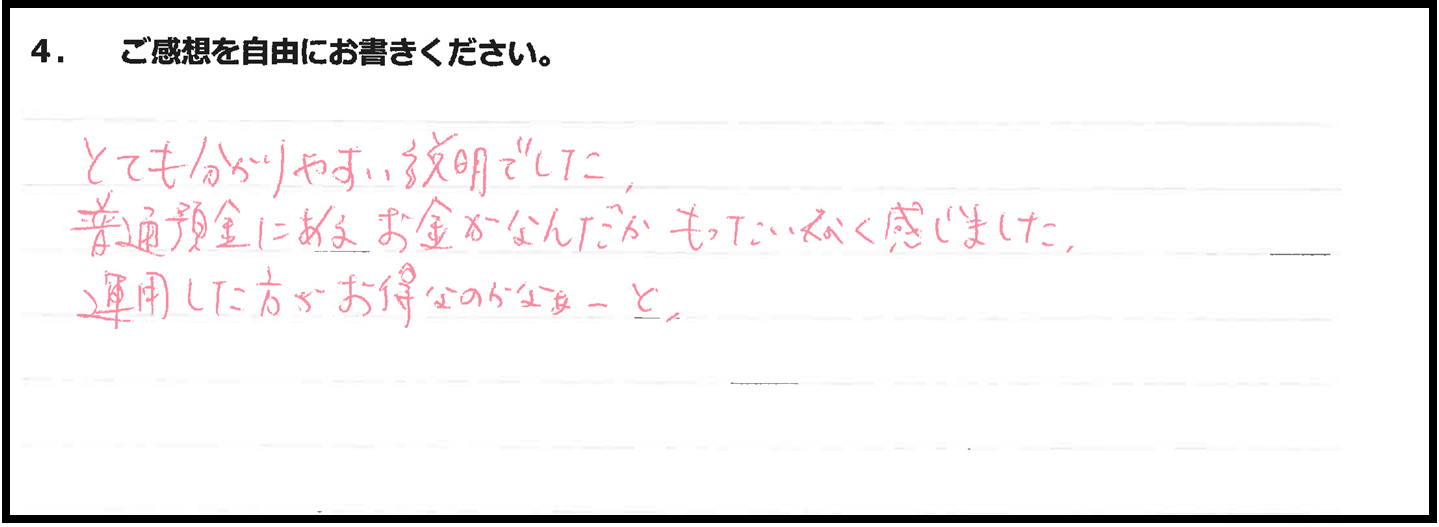 4. ご感想を自由にお書きください。
とても分かりやすい説明でした,
普通預金にあるお金がなんだかもったいなく感じました,
運用した方がお得なのかなぁーと,